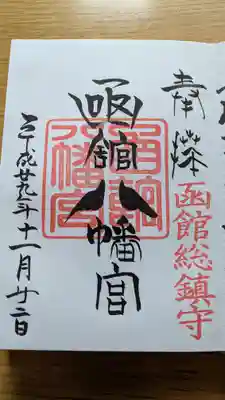 奉拝
函館総鎮守
函館八幡宮
函館八幡宮
平成廿九年十一月廿二日